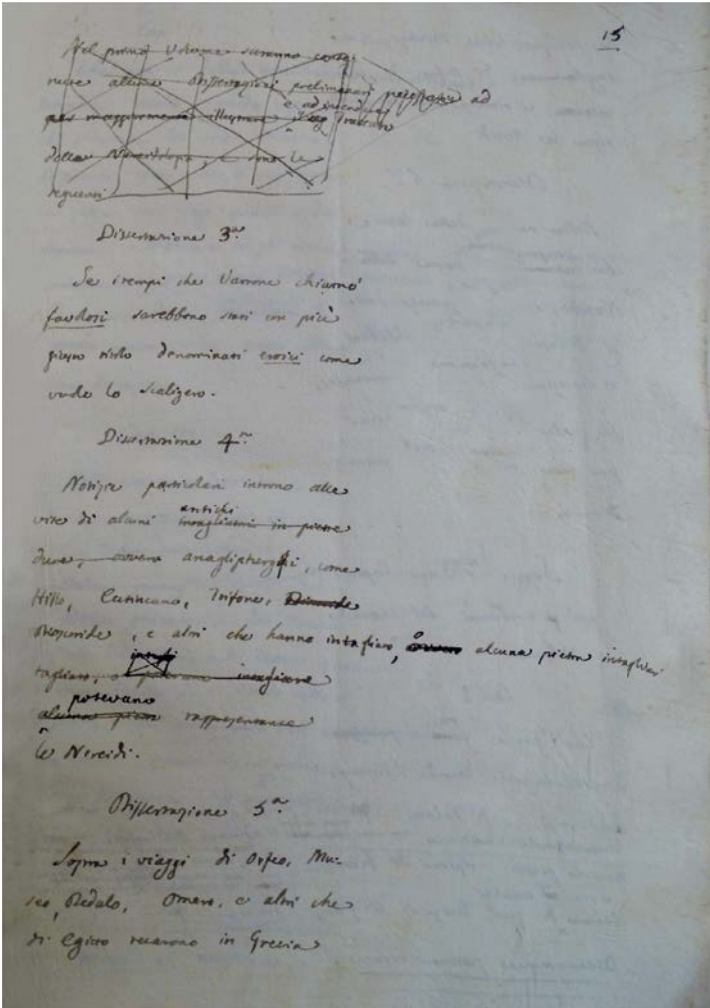 15
Nel primo Volume saranno conte-
nute alcune Dissertazioni preliminari necessarie ad
per maggiormente illustrare e ad intendere il Trattato
della Nereidologia, e sono le
seguenti
Dissertazione 3.a
Se i tempi che Varrone chiamò
favolosi sarebbono stati con più
giusto titolo denominati eroici come
vuole lo Scaligero.
Dissertazione 4.a
Notizie particolari intorno alle
vite di alcuni antichi intagliatori in pietre
dure, ovvero anagliptergfi, come
Hillo, Trifone,
Dioscoride, e altri che hanno intagliato, o alcuna pietra intagliar
tagliato, o potevano intagliare
potevano
alcuna pietra rappresentante
le Nereidi.
Dissertazione 5.a
Sopra i viaggi di Orfeo, Mu-
seo, Dedalo, Omero, e altri che
di Egitto recarono in Grecia